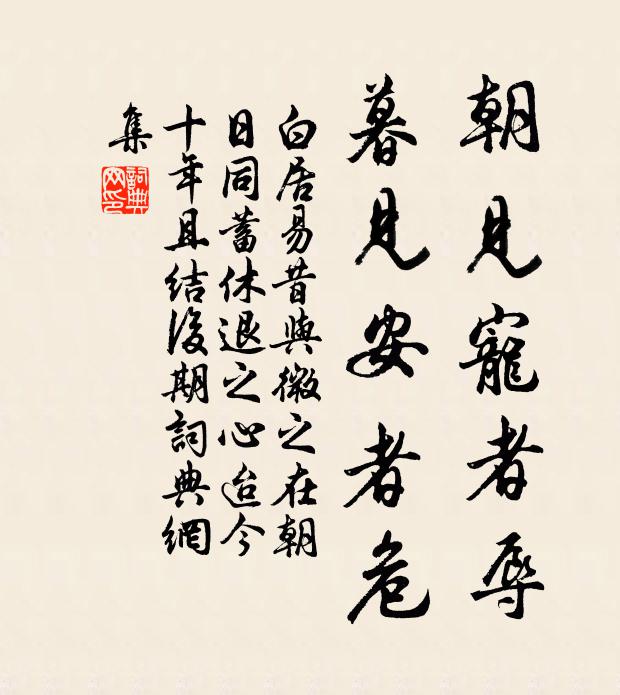 朝見寵者辱
暮見安者危
白居易昔與微之在朝
日同蓄休退之心迨今
十年且結後期詞典網
集
詞典
網印